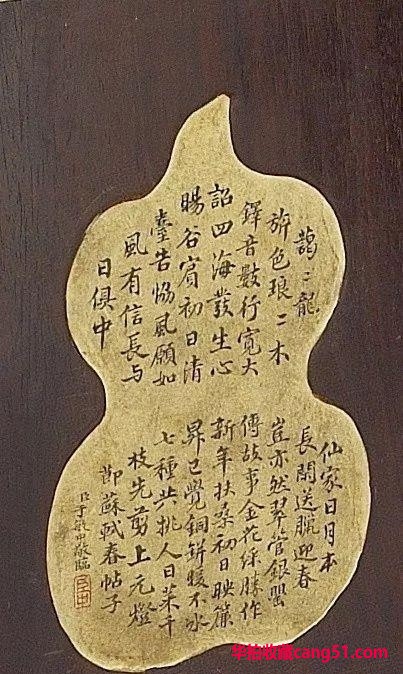 藹〻龍
旂色琅〻木
鐸音數行寬大
詔四海發生心
暘谷賓初日清
臺告協風願如
風有信長與
日俱中
仙家日月本
長閑送臘迎春
豈亦然翠管銀罌
傳故事金花綵勝作
新年扶桑初日映簾
昇已覺銅缾暖不冰
七種共挑人日菜千
枝先剪上元燈
節蘇軾春帖子
臣于敏中敬臨
华韵收藏cang51.com